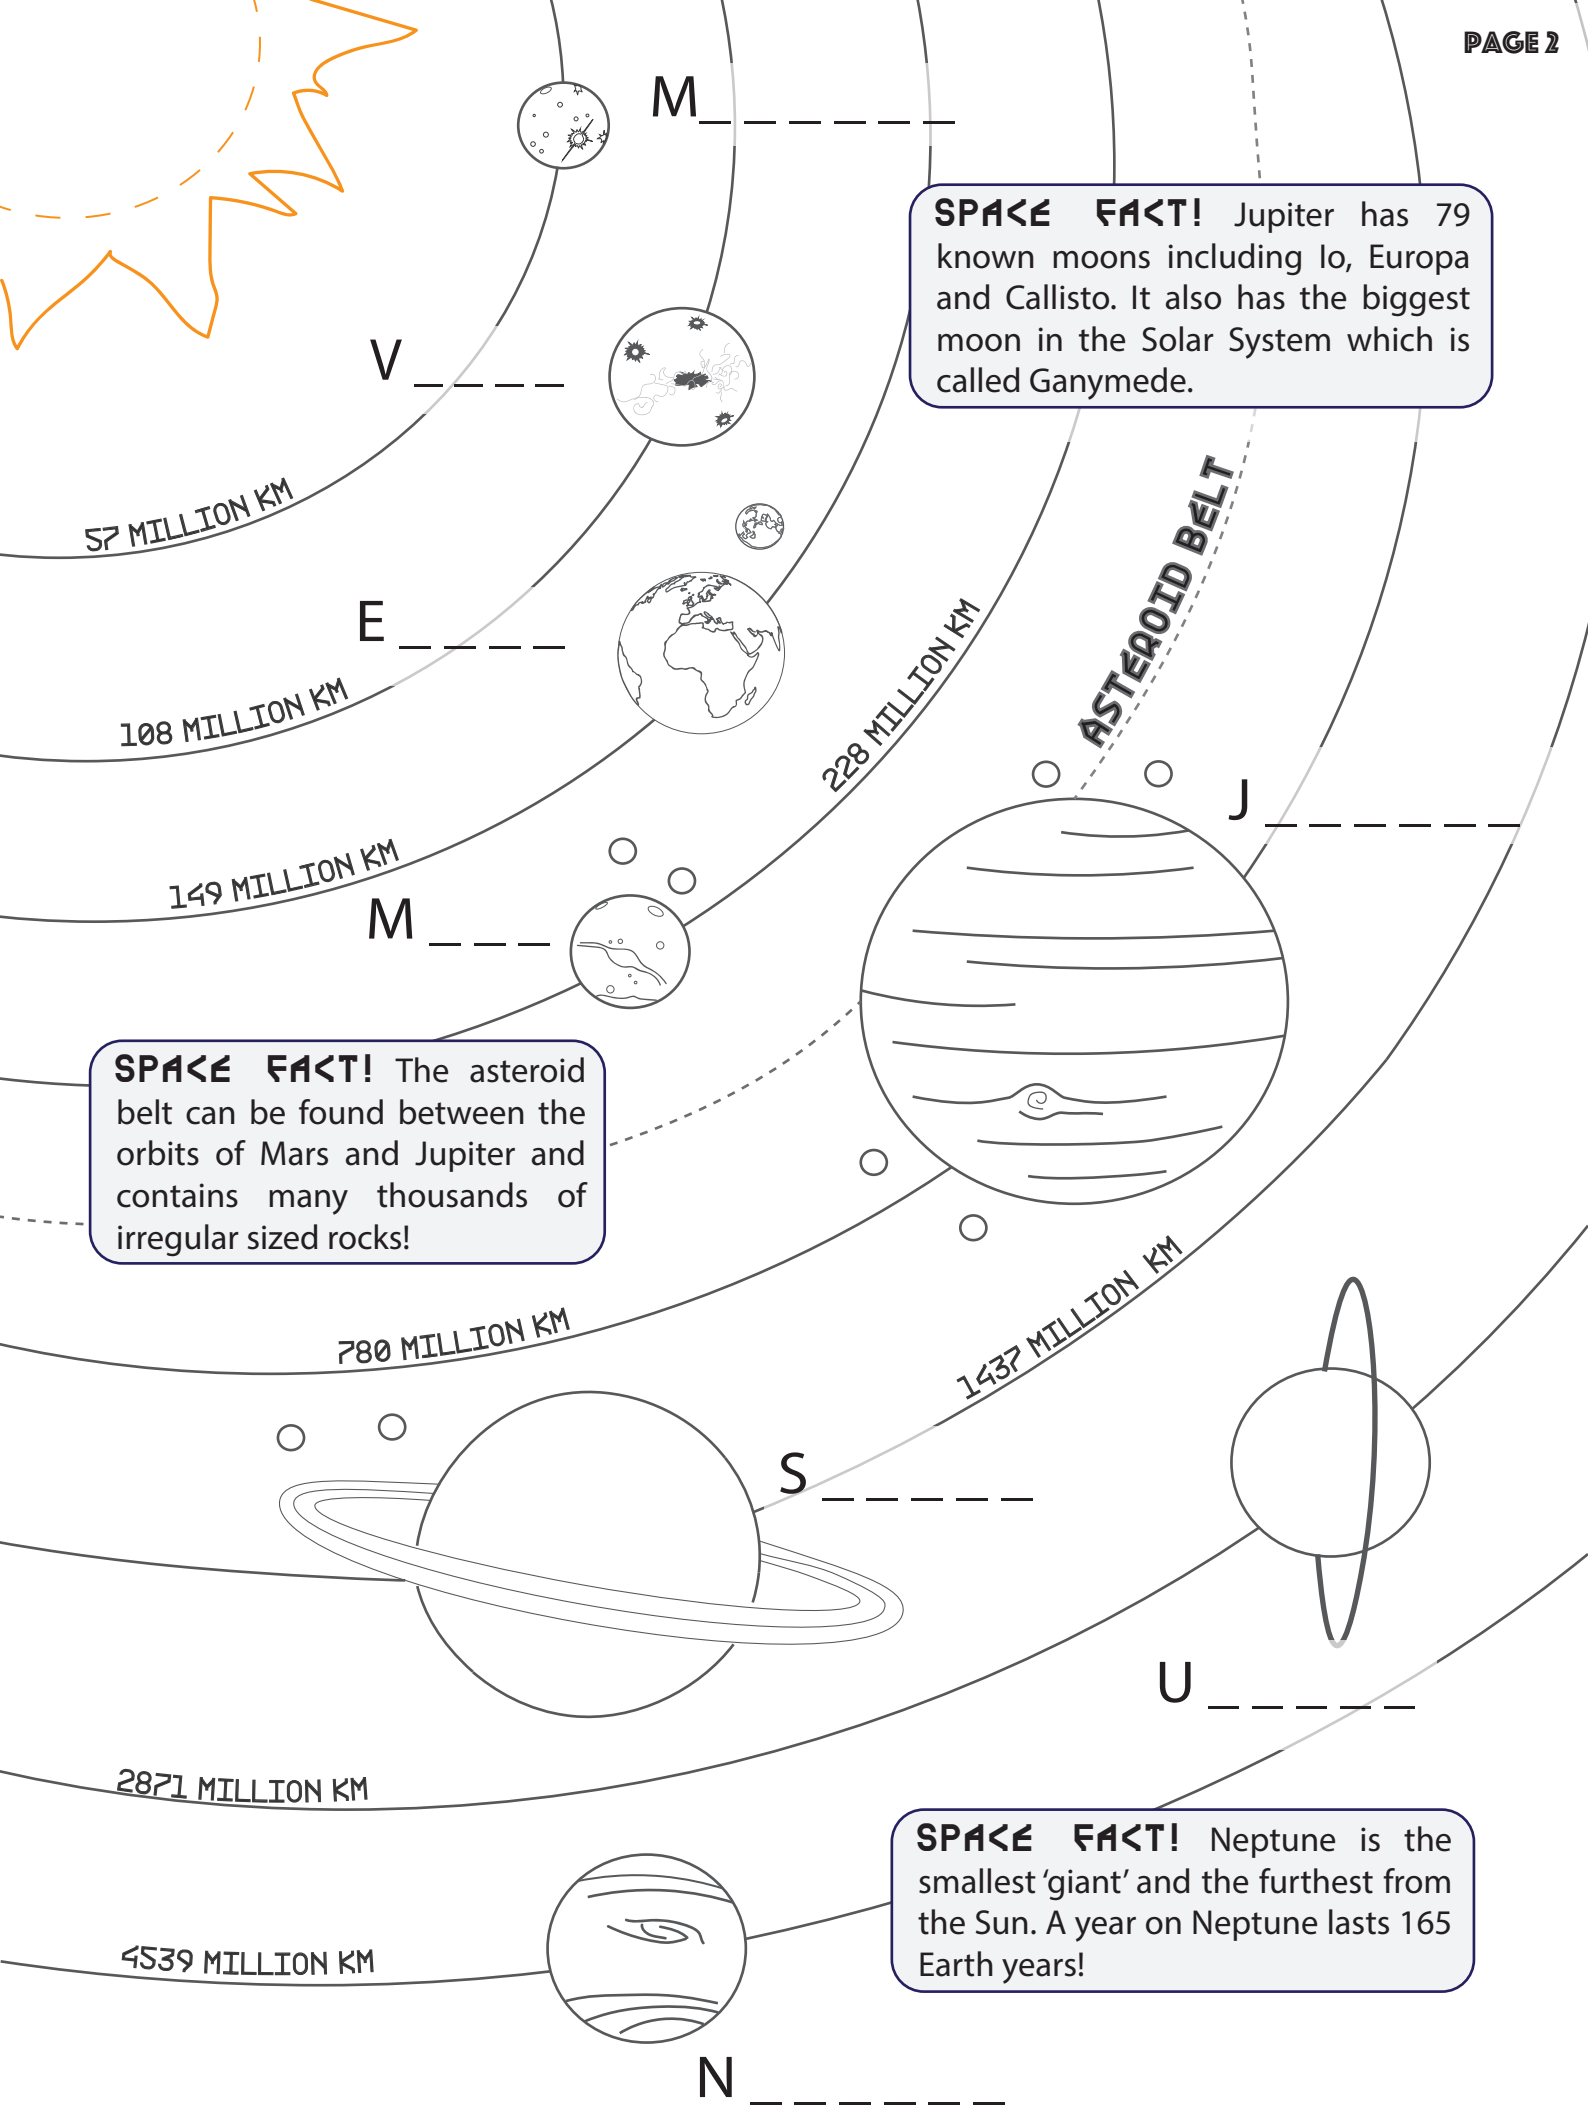 PAGE 2
M_ _ _ _ _ _
SPACE FACT! Jupiter has 79
known moons including Io, Europa
and Callisto. It also has the biggest
moon in the Solar System which is
called Ganymede.
V _ _ _ _
57 MILLION KM
ASTEROID BELT
E _ _ _ _
108 MILLION KM
228 MILLION KM
J _ _ _ _ _ _
149 MILLION KM
M _ _ _
SPACE FACT! The asteroid
belt can be found between the
orbits of Mars and Jupiter and
contains many thousands of
irregular sized rocks!
780 MILLION KM
1437 MILLION KM
S _ _ _ _ _
U _ _ _ _ _
2871 MILLION KM
SPACE FACT! Neptune is the
smallest ‘giant’ and the furthest from
the Sun. A year on Neptune lasts 165
Earth years!
4539 MILLION KM
N _ _ _ _ _ _